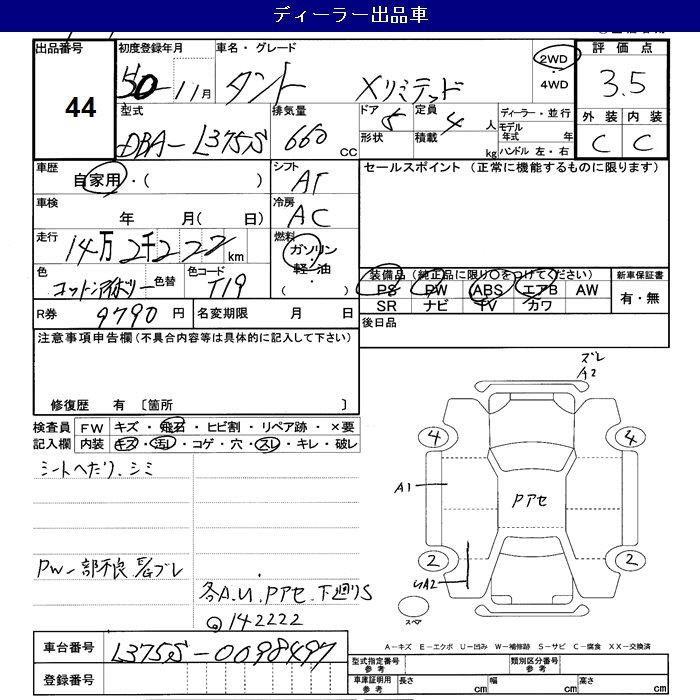 ディーラー出品車
出品番号 初度登録年月 車名・グレード 2WD・4WD 評価点
44 11月 タント Xリミテッド 3.5
型式 排気量 ドア 定員 ディーラー・並行 外装 内装
DBA-L375S 660 CC 5 4人 モデル年式 年 C C
形状 積載 kg ハンドル 左・右
車歴 シフト セールスポイント (正常に機能するものに限ります)
自家用・( ) AT
車検 冷房
年 月( 日) AC
走行 燃料
14万2千222km ガソリン・軽油・( )
色 色替 色コード 装備品(純正品に限り○をつけてください) 新車保証書
コットンアイボリー T19 PS PW ABS エアB AW 有・無
SR ナビ TV カワ
R券 9790円 名変期限 月 日 後日品
注意事項申告欄(不具合内容等は具体的に記入して下さい)
ズレ
A2
修復歴 有 〔箇所 〕
検査員 FW キズ・飛石・ヒビ割・リペア跡・×要
記入欄 内装 キズ・汚レ・コゲ・穴・スレ・キレ・破レ
4 4
シートヘたり、シミ
A1
Pアセ
PW一部不良
2 2
A2
各A.U.Pアセ.下廻りS
スペア
@142222
A-キズ E-エクボ U-凹み W-補修跡 S-サビ C-腐食 XX-交換済
車台番号 L375S-0098497
型式指定番号 参考 類別区分番号 参考
登録番号
車庫証明用 参考 長さ cm 幅 cm 高さ cm